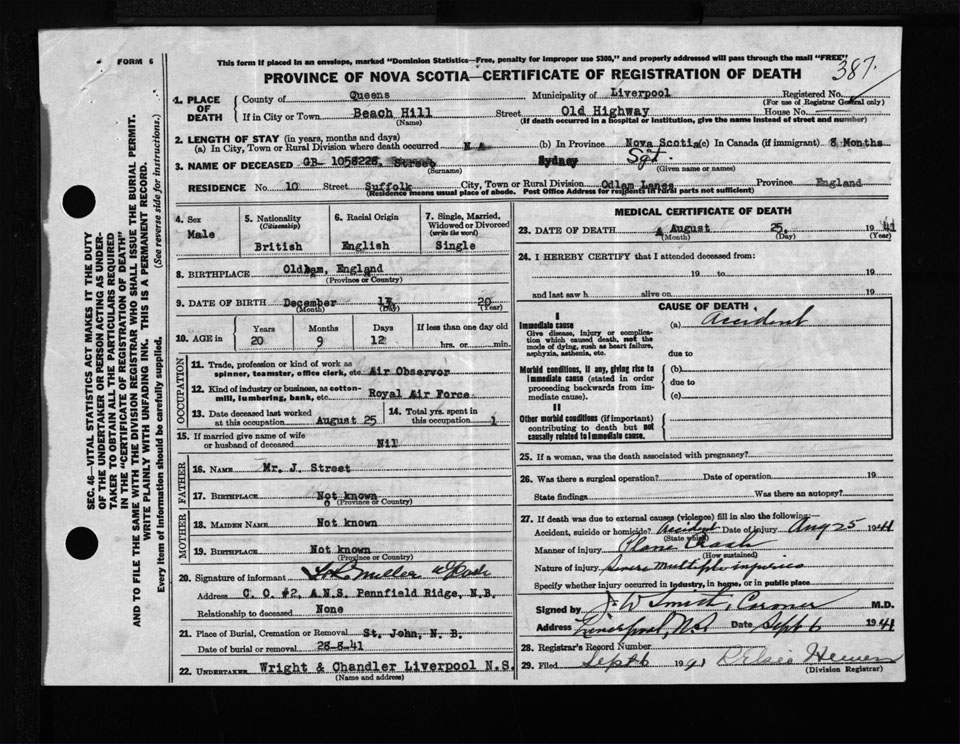 FORM 6
This form if placed in an envelope, marked "Dominion Statistics—Free, penalty for improper use $300," and properly addressed will pass through the mail "FREE"
387.
PROVINCE OF NOVA SCOTIA—CERTIFICATE OF REGISTRATION OF DEATH
SEC. 46—VITAL STATISTICS ACT MAKES IT THE DUTY
OF THE UNDERTAKER OR PERSON ACTING AS UNDER-
TAKER TO OBTAIN ALL THE PARTICULARS REQUIRED
IN THE "CERTIFICATE OF REGISTRATION OF DEATH"
AND TO FILE THE SAME WITH THE DIVISION REGISTRAR WHO SHALL ISSUE THE BURIAL PERMIT.
WRITE PLAINLY WITH UNFADING INK. THIS IS A PERMANENT RECORD.
Every item of information should be carefully supplied. (See reverse side for instructions.)
1. PLACE OF DEATH
County of Queens Municipality of Liverpool Registered No.
(For use of Registrar General only)
If in City or Town Beach Hill Street Old Highway House No.
(Name) (If death occurred in a hospital or institution, give the name instead of street and number)
2. LENGTH OF STAY (in years, months and days)
(a) In City, Town or Rural Division where death occurred N A (b) In Province Nova Scotia (c) In Canada (if immigrant) 8 Months
3. NAME OF DECEASED GB 1058228. Street Sydney Sgt.
(Surname) (Given name or names)
RESIDENCE No. 10 Street Suffolk City, Town or Rural Division Odlam Lancs Province England
(Residence means usual place of abode. Post Office Address for residents in rural parts not sufficient)
4. Sex
Male
5. Nationality
(Citizenship)
British
6. Racial Origin
English
7. Single, Married, Widowed or Divorced
(write the word)
Single
8. BIRTHPLACE Oldham, England
(Province or Country)
9. DATE OF BIRTH December 13 20
(Month) (Day) (Year)
10. AGE in
Years Months Days If less than one day old
20 9 12 hrs. or min.
OCCUPATION
11. Trade, profession or kind of work as
spinner, teamster, office clerk, etc. Air Observor
12. Kind of industry or business, as cotton-
mill, lumbering, bank, etc. Royal Air Force
13. Date deceased last worked
at this occupation August 25
14. Total yrs. spent in
this occupation 1
15. If married give name of wife
or husband of deceased Nil
FATHER
16. NAME Mr. J. Street
17. BIRTHPLACE Not known
(Province or Country)
MOTHER
18. MAIDEN NAME Not known
19. BIRTHPLACE Not known
(Province or Country)
20. Signature of informant Miller
Address C. O. #2. A.N.S. Pennfield Ridge, N.B.
Relationship to deceased None
21. Place of Burial, Cremation or Removal St. John, N. B.
Date of burial or removal 28-8-41
22. UNDERTAKER Wright & Chandler Liverpool N.S.
(Name and address)
MEDICAL CERTIFICATE OF DEATH
23. DATE OF DEATH August 25, 1941
(Month) (Day) (Year)
24. I HEREBY CERTIFY that I attended deceased from:
19 to 19
and last saw h alive on 19
CAUSE OF DEATH
I
Immediate cause (a) Accident
Give disease, injury or complica-
tion which caused death, not the
mode of dying, such as heart failure,
asphyxia, asthenia, etc.
due to
Morbid conditions, if any, giving rise to (b)
immediate cause (stated in order due to
proceeding backwards from im-
mediate cause). (c)
II
Other morbid conditions (if important)
contributing to death but not
causally related to immediate cause.
25. If a woman, was the death associated with pregnancy?
26. Was there a surgical operation? Date of operation 19
State findings Was there an autopsy?
27. If death was due to external causes (violence) fill in also the following:—
Accident, suicide or homicide? Accident Date of injury Aug 25 1941
(State which)
Manner of injury Plane Crash
(How sustained)
Nature of injury Severe multiple injuries
Specify whether injury occurred in industry, in home, or in public place
Signed by J W Smith, Coroner M.D.
Address Liverpool, N.S. Date Sept 6 1941
28. Registrar's Record Number
29. Filed Sept 6 1941
(Division Registrar)